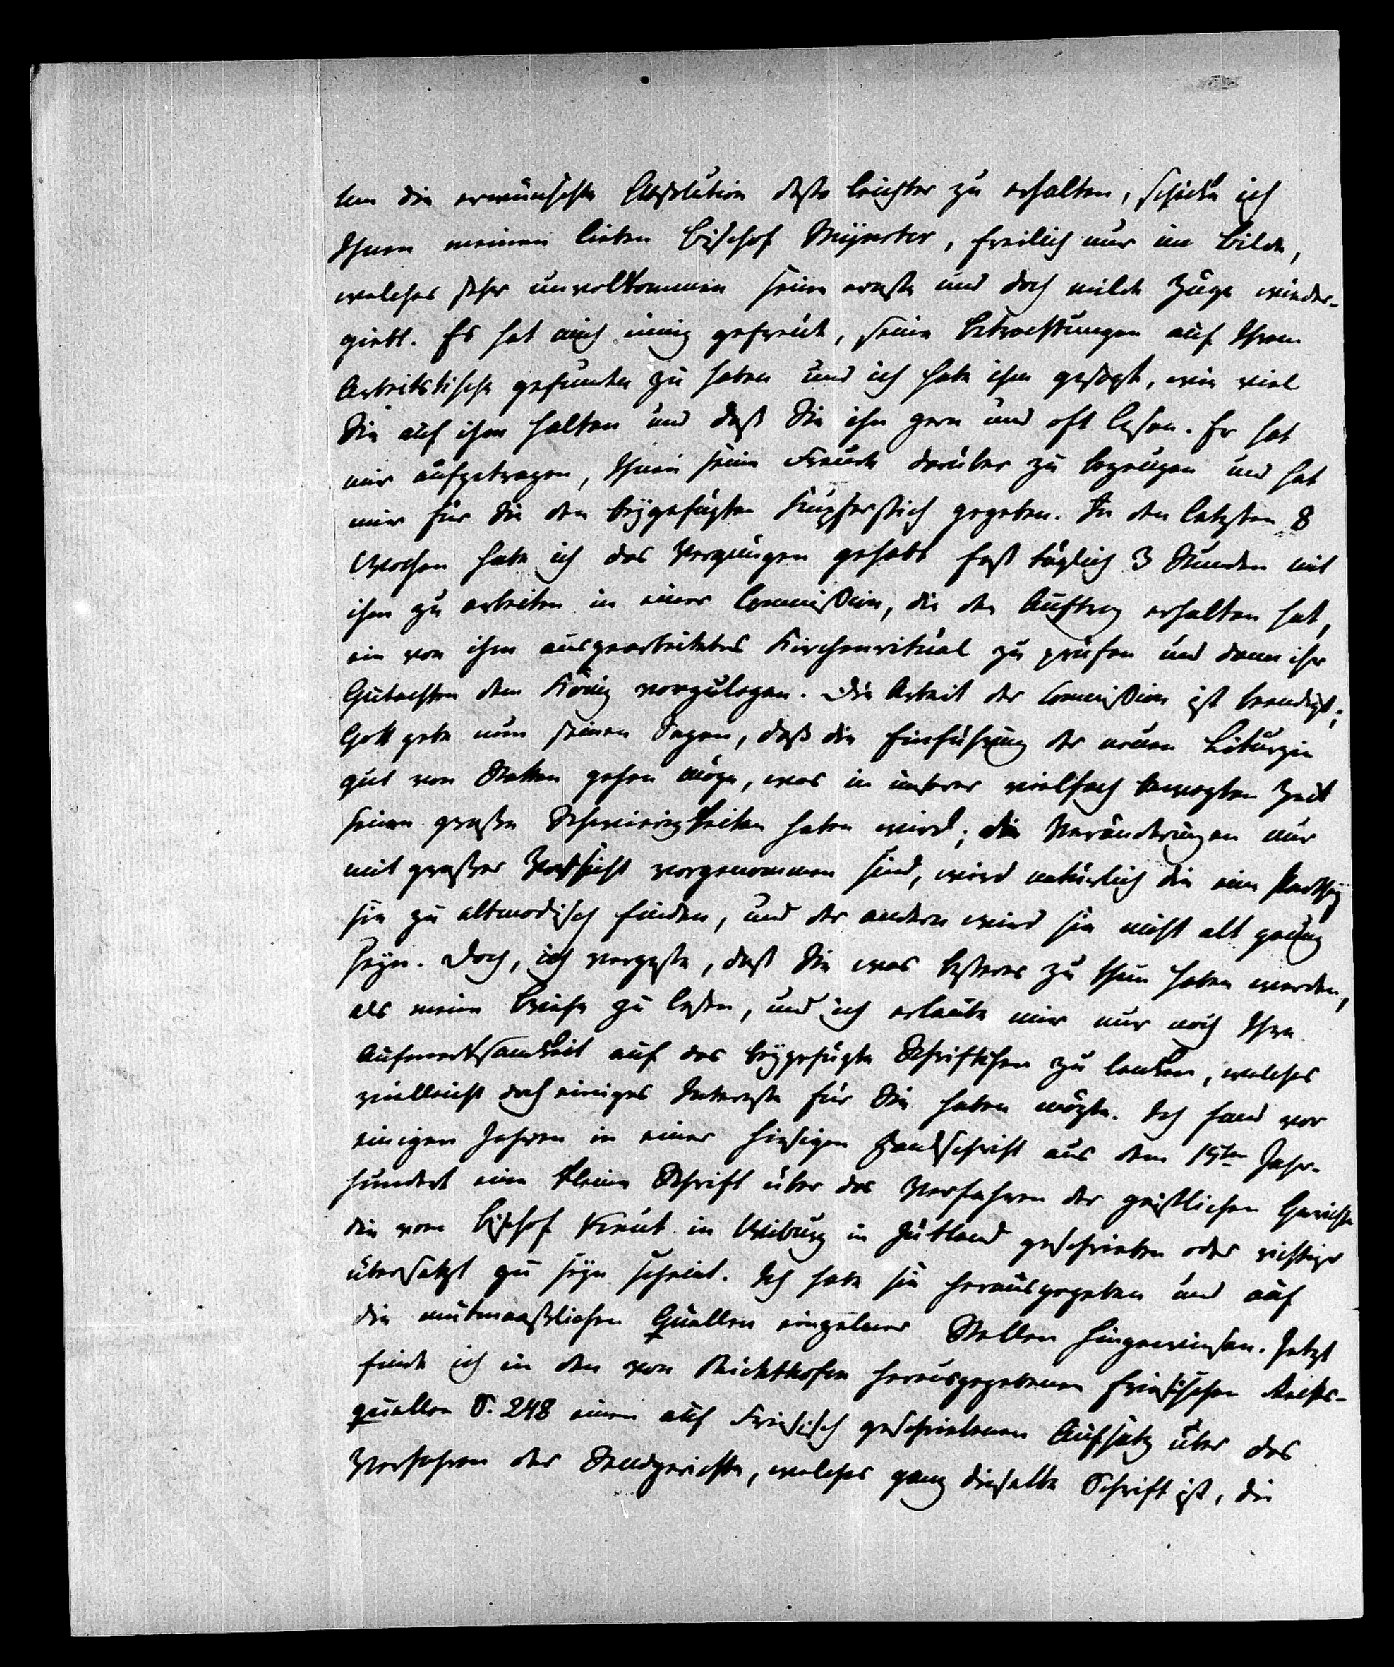 Um die erwünschte Absolution desto leichter zu erhalten, schicke ich
Ihnen meinen lieben Bischof Mynster, freilich nur im Bilde,
welches sehr unvollkommen seine ernste und doch milde Züge wieder-
giebt. Es hat mich innig gefreut, seine Betrachtungen auf Ihrem
Arbeitstische gefunden zu haben und ich habe ihm gesagt, wie viel
Sie auf ihm halten und daß Sie ihn gern und oft lesen. Er hat
mir aufgetragen, Ihnen seine Freude darüber zu bezeugen und hat
mir für Sie den beygefügten Kupferstich gegeben. In den letzten 8
Wochen habe ich das Vergnügen gehabt fast täglich 3 Stunden mit
ihm zu arbeiten in einer Commission, die den Auftrag erhalten hat,
ein von ihm ausgearbeitetes Kirchenritual zu prüfen und dann ihr
Gutachten dem König vorzulegen. Die Arbeit der Commission ist beendigt;
Gott gebe nun seinen Segen, daß die Einführung der neuen Liturgie
gut von Statten gehen möge, was in unserer vielfach bewegten Zeit
seine große Schwierigkeiten haben wird; die Veränderungen nur
mit großer Vorsicht vorgenommen sind, wird natürlich die eine Parthey
sie zu altmodisch finden, und der andern wird sie nicht alt genug
seyn. Doch, ich vergesse, daß Sie was besseres zu thun haben werden,
als meine Briefe zu lesen, und ich erlaube mir nur noch Ihre
Aufmerksamkeit auf das beygefügte Schriftchen zu lenken, welches
vielleicht doch einiges Interesse für Sie haben mögte. Ich fand vor
einigen Jahren in einer hiesigen Handschrift aus dem 15ten Jahr-
hundert eine kleine Schrift über das Verfahren der geistlichen Gerichte
die vom Bischof Knut in Wiburg in Jütland geschrieben oder richtiger
übersetzt zu seyn scheint. Ich habe sie herausgegeben und auf
die muthmaaßlichen Quellen einzelner Stellen hingewiesen. Jetzt
finde ich in den von Richthofen herausgegebenen friesischen Rechts-
quellen S. 248 einen auf Friesisch geschriebenen Aufsatz über das
Verfahren der Sendgerichte, welches ganz dieselbe Schrift ist, die